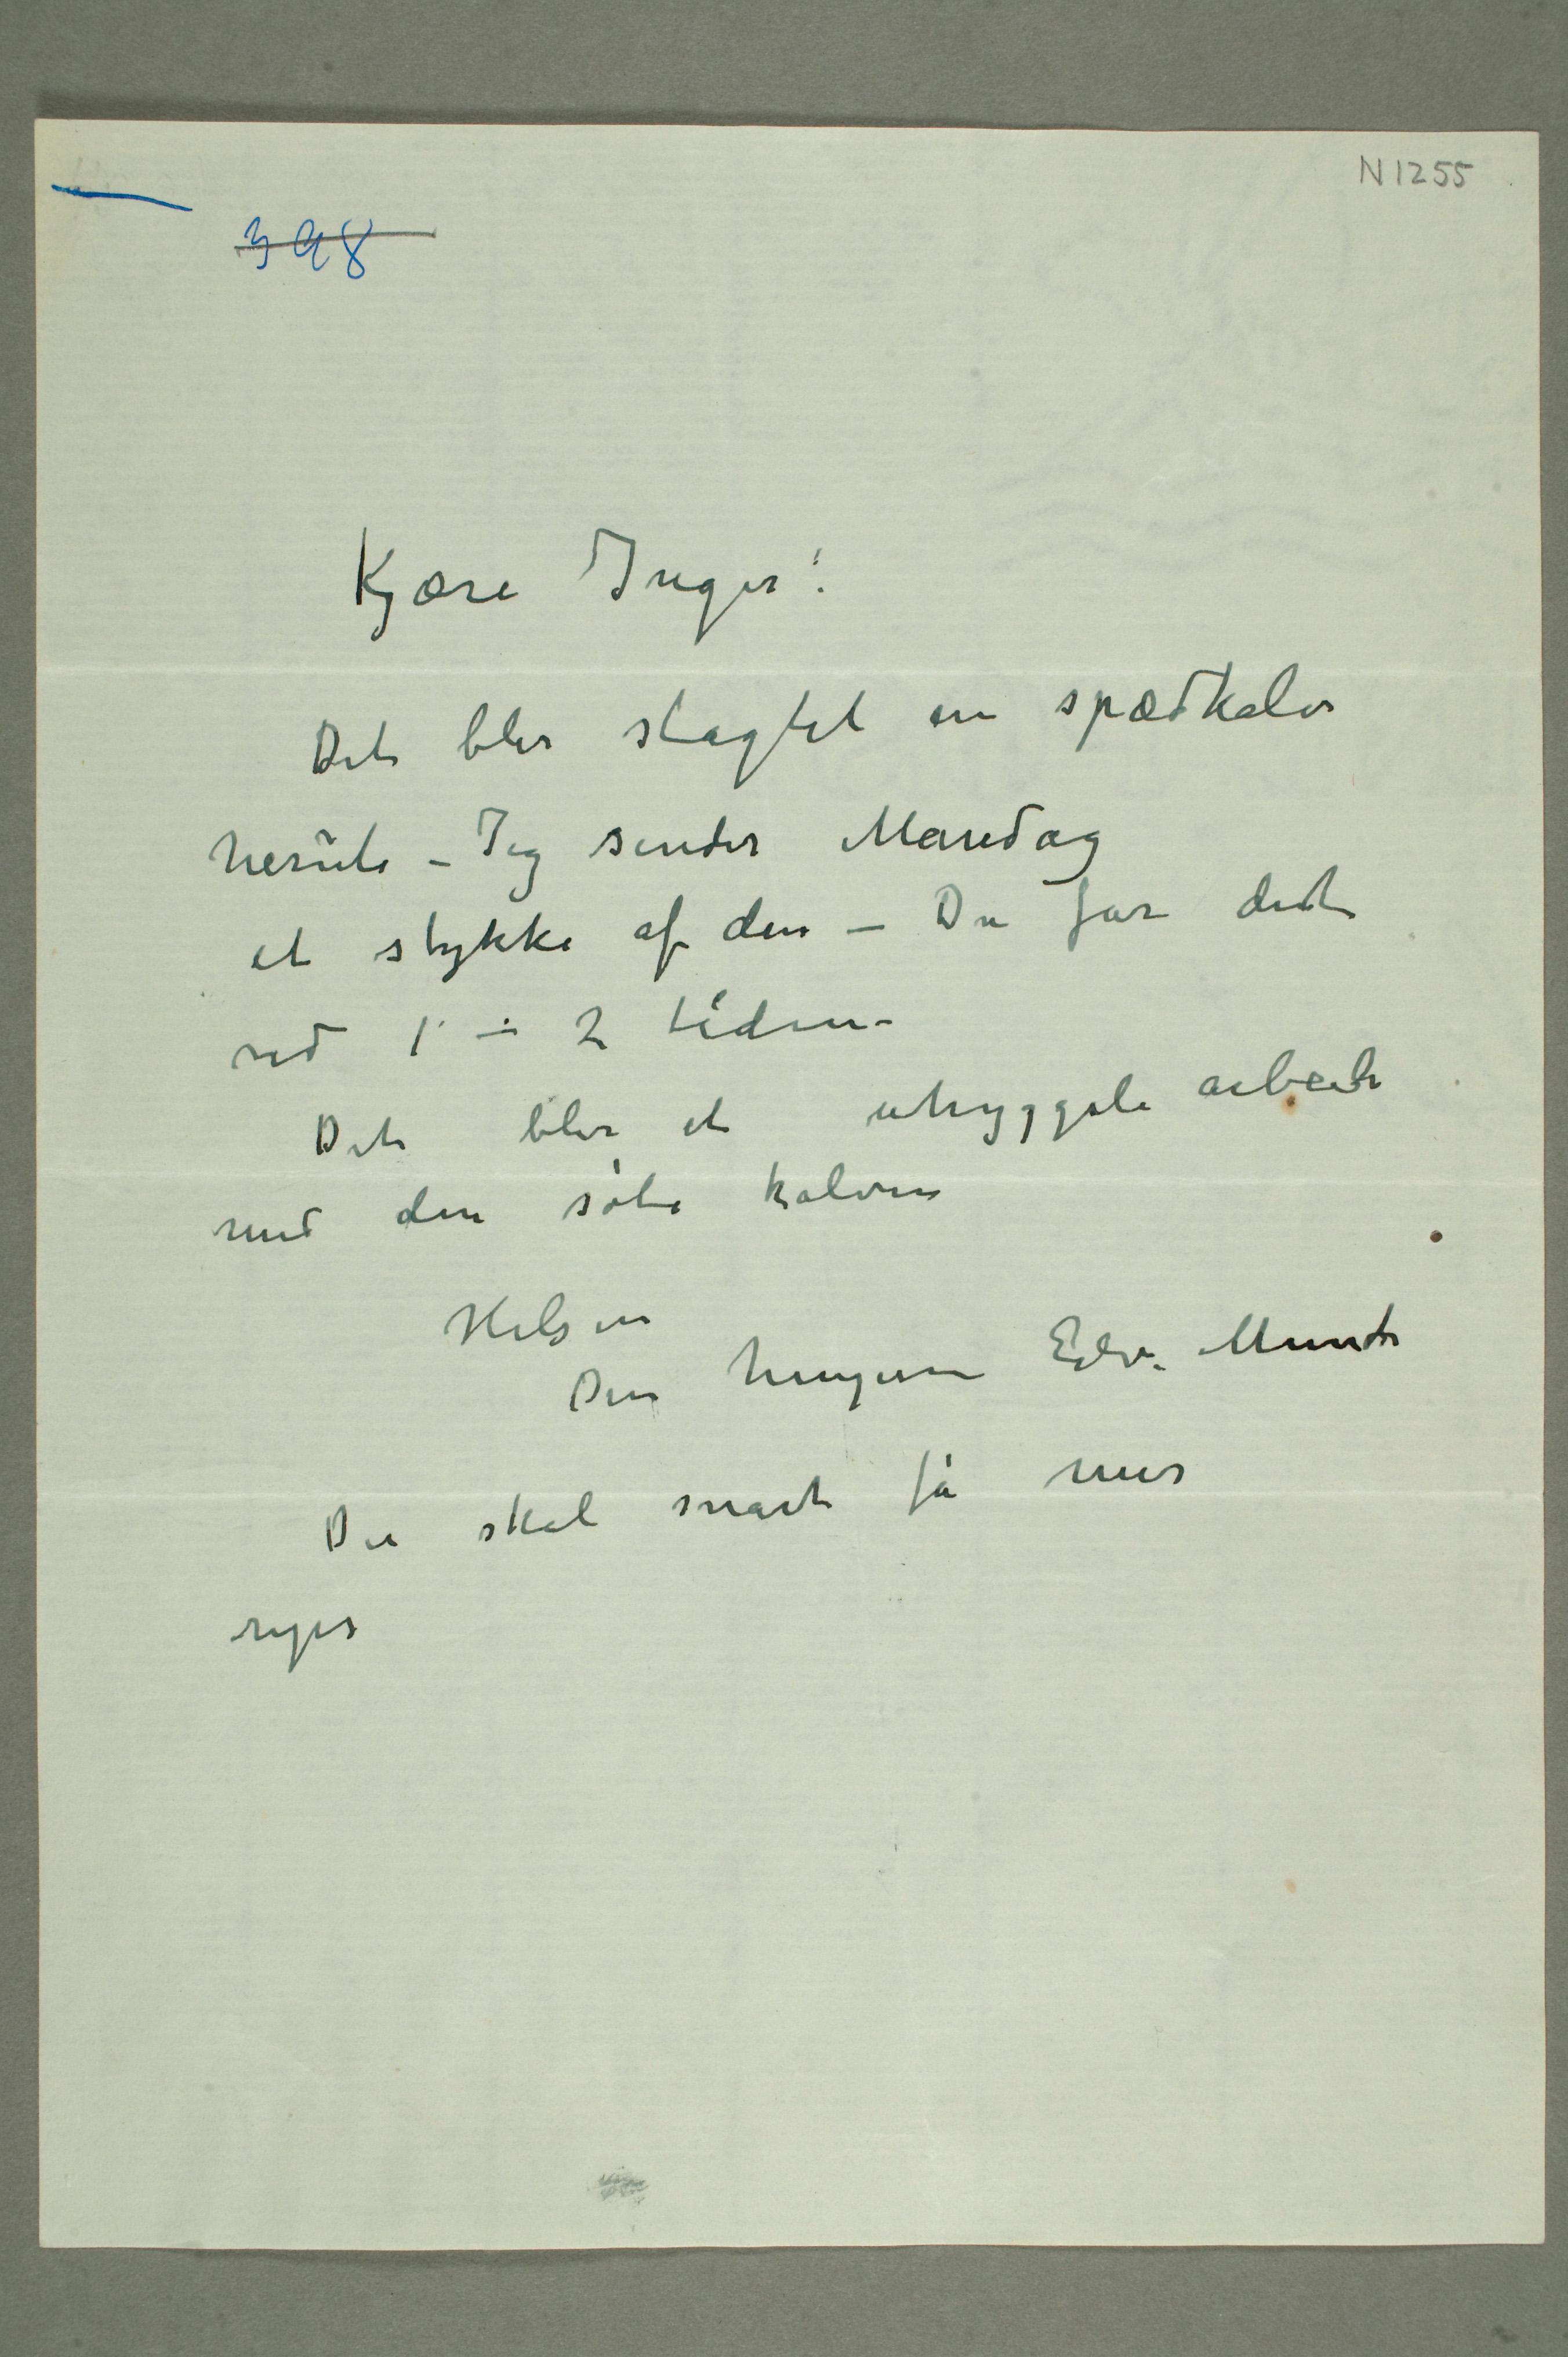 N 1255
398
Kjære Inger!
Det blir slagtet en spædkalv
herute – Jeg sender Mandag
et stykke af den – Du får det
ved 1 – 2 tiden –
Det blir et uhyggeli arbeide
med den søte kalven
Hilsen
Din hengivne Edv. Munch
Du skal snart få mer
ryper